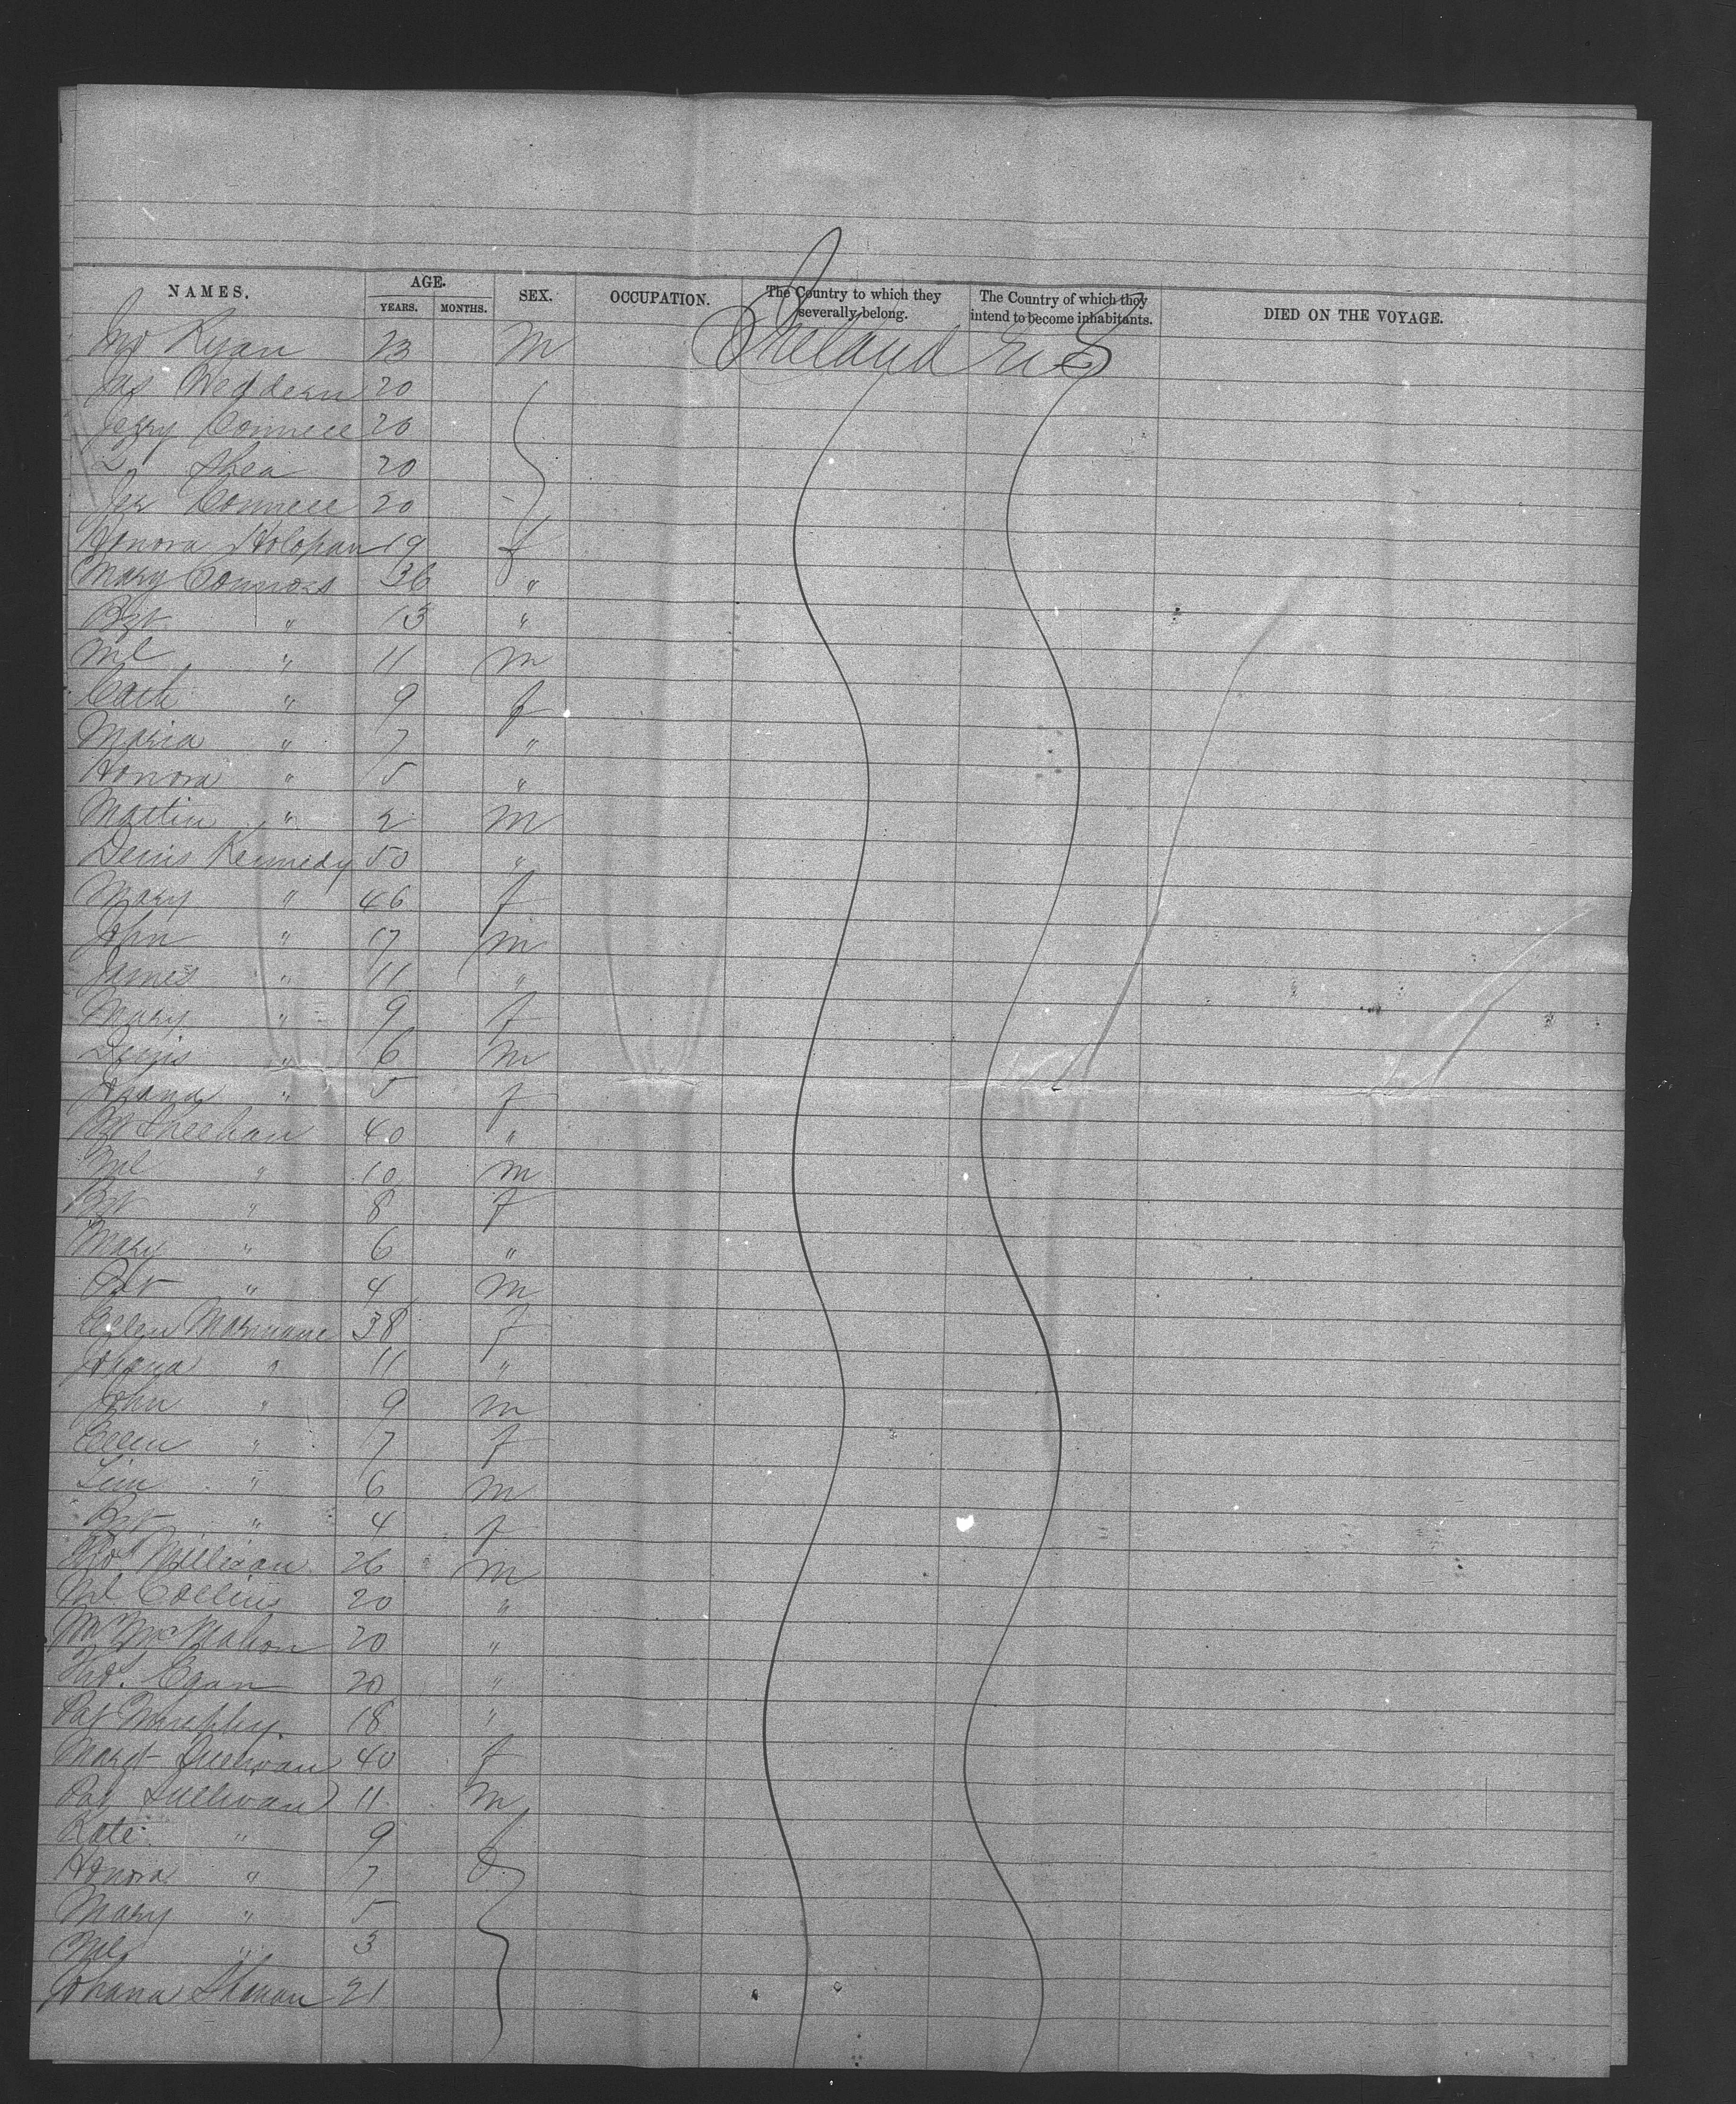 NAMES. AGE. YEARS. MONTHS. SEX. OCCUPATION. The Country to which they severally belong. The Country of which they intend to become inhabitants. DIED ON THE VOYAGE.
Jno Ryan 23 m Ireland U.S
Jas 20
Jerry Connell 20
Shea 20
Jer Connell 20
Honora Holohan 19 f
Mary Connors 36 "
Bgt " 13 "
Ml " 11 m
Cath " 9 f
Maria " 7 "
Honora " 5 "
Martin " 2 m
Denis Kennedy 50 "
Mary " 46 f
John " 17 m
James " 11 "
Mary " 9 f
Denis " 6 m
" 5 f
Sheehan 40 "
Ml " 10 m
Bgt " 8 f
Mary " 6 "
" 4 m
Ellen Marinane 38 f
Johana " 11 "
John " 9 m
Ellen " 7 f
" 6 m
Bgt " 4 f
Thos 26 m
Ml Collins 20 "
McMahon 20 "
Thos. Egan 20 "
Pat Murphy 18 "
Margt Sullivan 40 f
Pat Sullivan 11 m
Kate " 9 f
Honora " 7
Mary " 5
Ml " 3
Johana Shanan 21